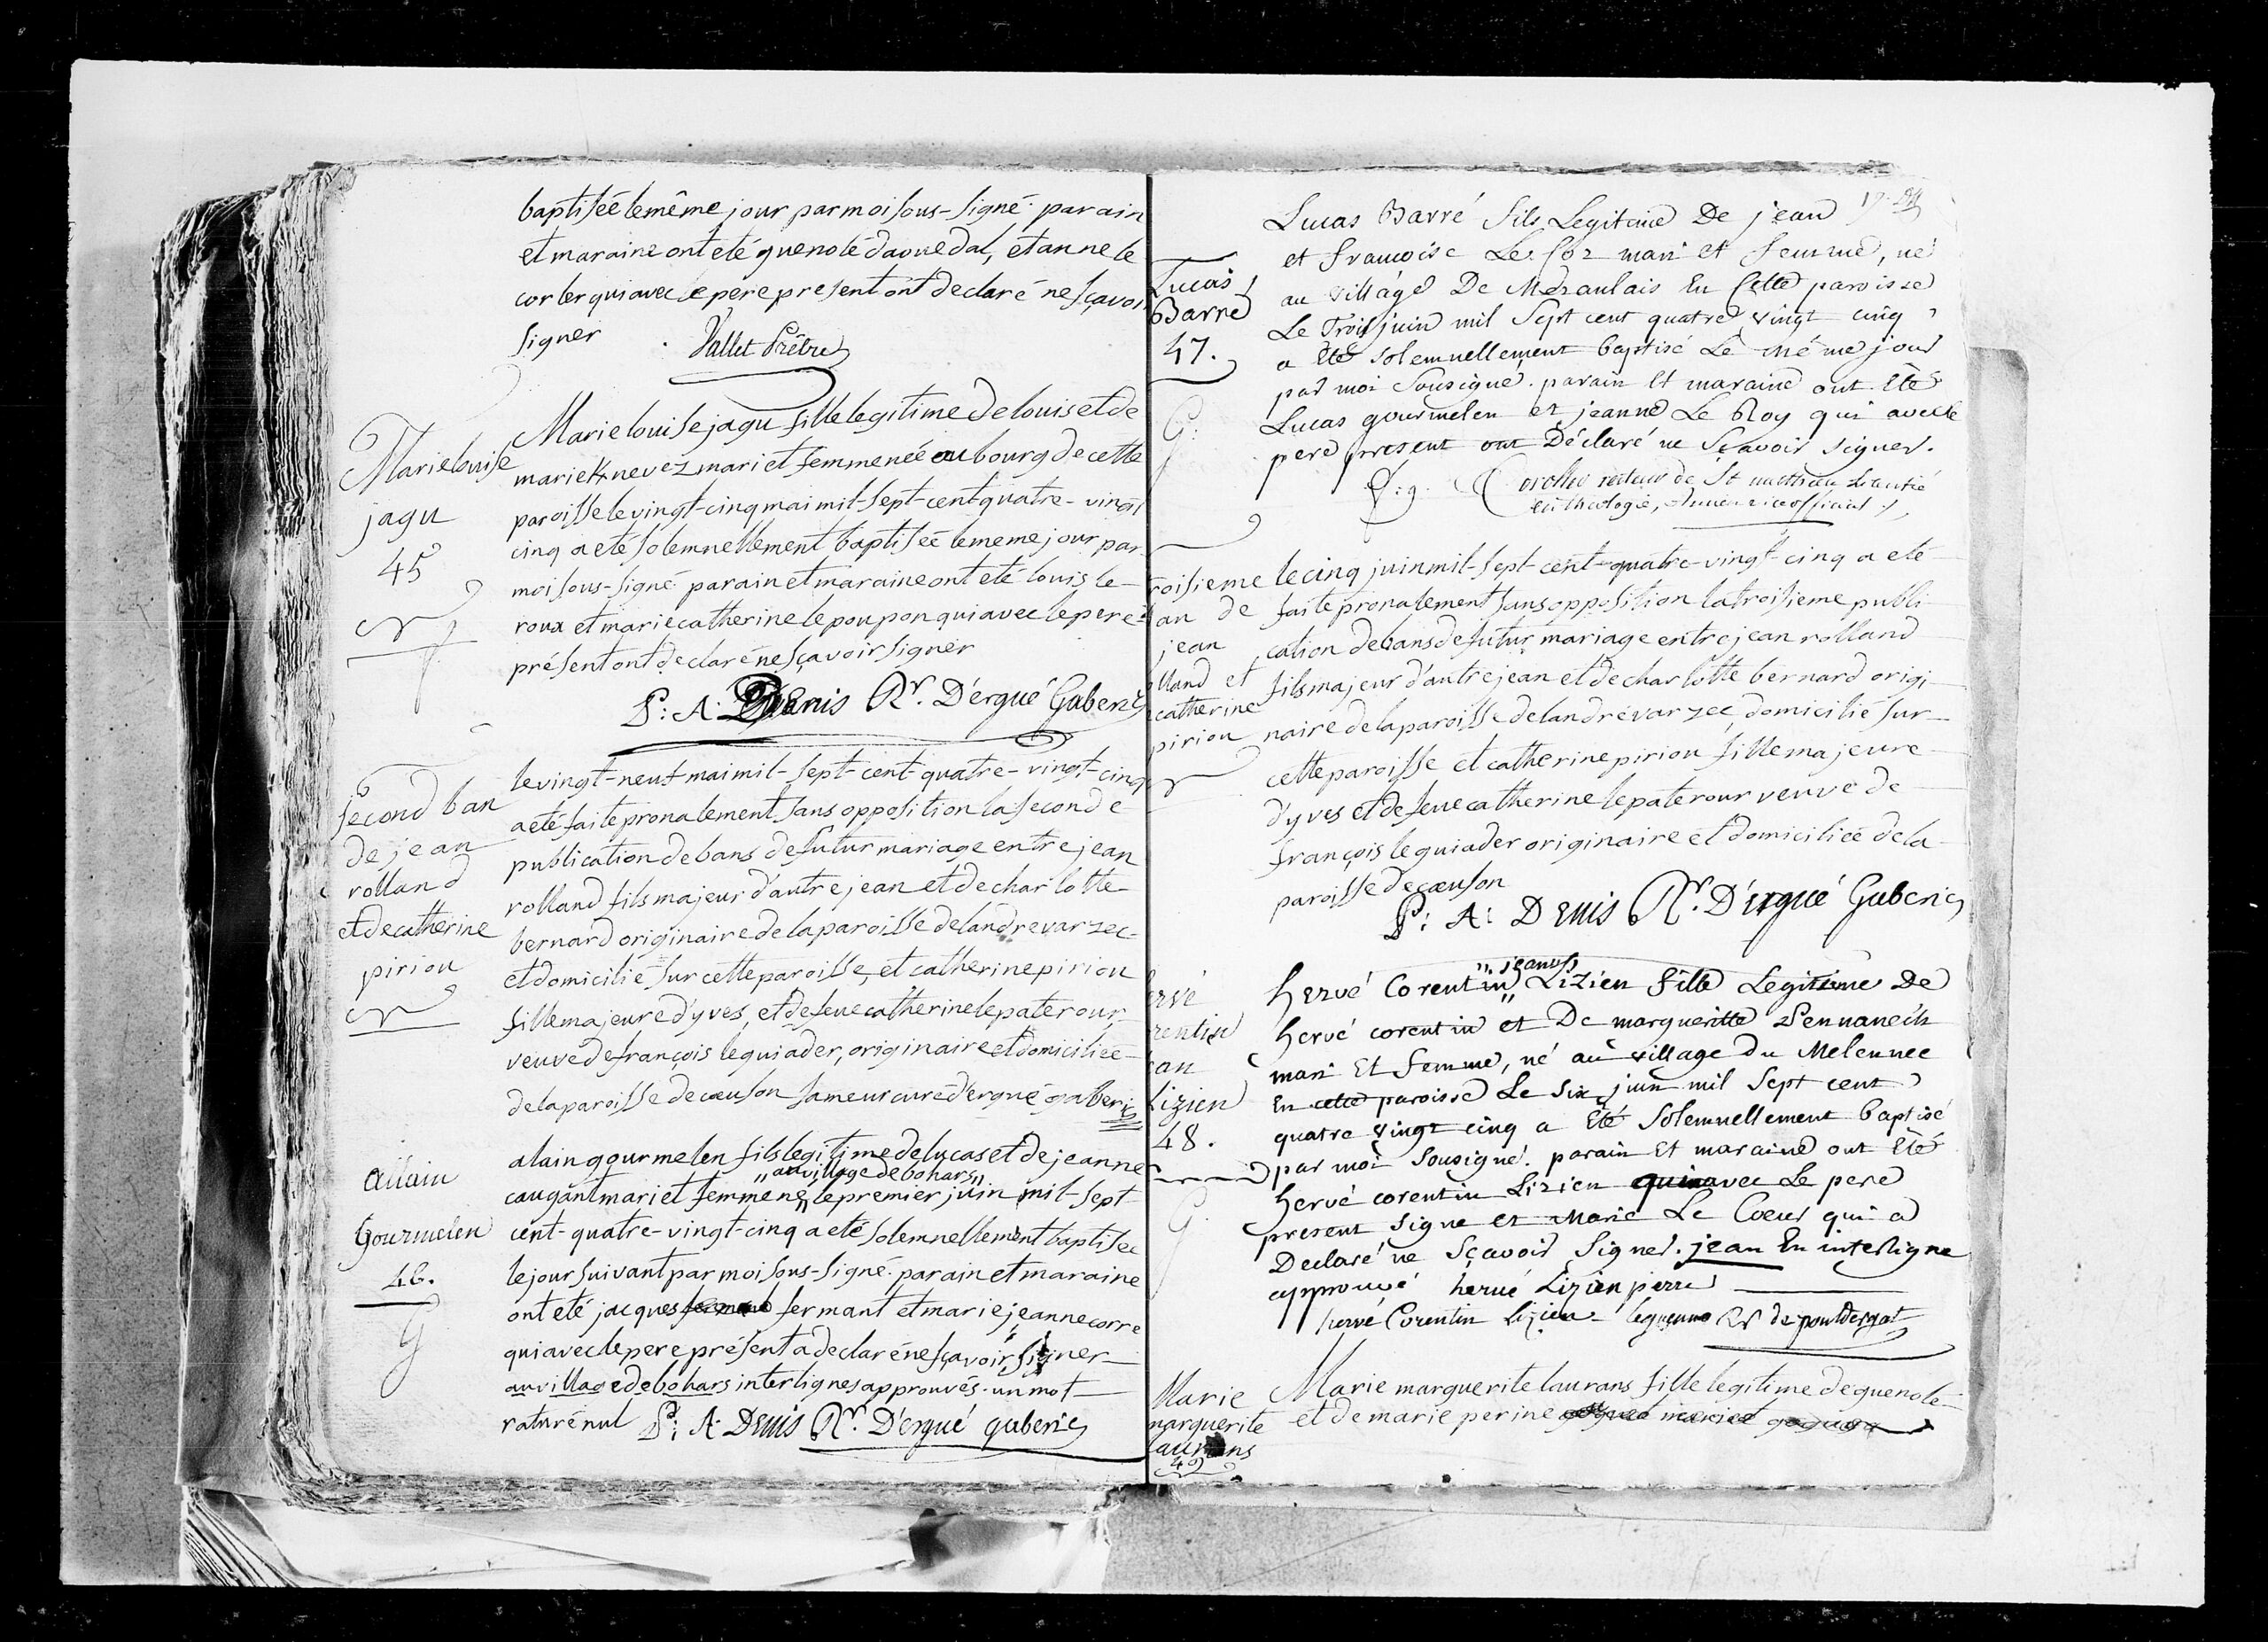 baptisée le même jour par moi sous-signé. parain
et maraine ont eté guenolé daouedal, et anne le
cor ler qui avec le pere present ont declaré ne sçavoir
signer
Vallet Prêtre
Marie louise
jagu
45
Marie louise jagu fille legitime de louis et de
marie Knevez mari et femme née au bourg de cette
paroisse le vingt-cinq mai mil-sept-cent-quatre-vingt
cinq a eté solemnellement baptisée le meme jour par
moi sous-signé parain et maraine ont eté louis le
roux et marie catherine le poupon qui avec le pere
présent ont declaré ne sçavoir signer
P: A: Denis Rr. D'ergué Gaberic
second ban
de jean
rolland
et de catherine
piriou
le vingt-neuf mai mil-sept-cent-quatre-vingt-cinq
a eté faite pronalement sans opposition la seconde
publication de bans de futur mariage entre jean
rolland fils majeur d'autre jean et de charlotte
bernard originaire de la paroisse de landrevarzec
et domicilié sur cette paroisse, et catherine piriou
fille majeure d'yves, et de feue catherine le paterour
veuve de françois le guiader, originaire et domiciliée
de la paroisse de cœuson sameur curé d'ergué gaberic
allain
Gourmelen
46.
alain gourmelen fils legitime de lucas et de jeanne
" au village de bohars "
caugant mari et femme né " le premier juin mil-sept
cent-quatre-vingt-cinq a eté solemnellement baptisé
le jour suivant par moi sous-signé. parain et maraine
ont eté jacques fermant et marie jeanne corre
qui avec le pere présent a declaré ne sçavoir signer
au village de bohars interlignes approuvés. un mot
raturé nul P: A: Denis Rr. D'ergué gaberic
Lucas
Barré
47.
Lucas Barré fils Legitime De jean
et francoise Le Cor mari et femme, né
au village De Mezanlais En Cette paroisse
Le Trois juin mil Sept cent quatre vingt cinq
a Eté Solemnellement baptisé Le même jour
par moi Sousigné. parain Et maraine ont Eté
Lucas gourmelen et jeanne Le Roy qui avec le
pere present ont Déclaré ne Sçavoir signer.
recteur de St mathieu licentié
en theologie, Ancien vice official
roisieme
an de
jean
lland et
catherine
piriou
le cinq juin mil-sept-cent-quatre-vingt-cinq a eté
faite pronalement sans opposition la troisieme publi
cation de bans de futur mariage entre jean rolland
fils majeur d'autre jean et de charlotte bernard origi
naire de la paroisse de landrévarzec, domicilié sur
cette paroisse et catherine piriou fille majeure
d'yves et de feue catherine le paterour veuve de
françois le guiader originaire et domiciliée de la
paroisse de cœuson
P: A: Denis Rr. D'ergué Gaberic
ervé
rentin
an
Lizien
48.
" jean "
hervé Corentin " Lizien fille Legitime De
hervé corentin et De margueritte Pennanech
mari Et femme, né au village du Melennec
En cette paroisse Le Six juin mil Sept cent
quatre vingt cinq a Eté Solemnellement baptisé
par moi Sousigné. parain Et maraine ont Eté
hervé corentin Lizien qui avec Le pere
present Signe et Marie Le Coeur qui a
Declaré ne Sçavoir Signer. jean En interligne
approuvé hervé Lizien pierre
hervé Corentin Lizien leguenno Rr de pouldergat
Marie
marguerite
laurans
49
Marie marguerite laurans fille legitime de guenolé
et de marie perine